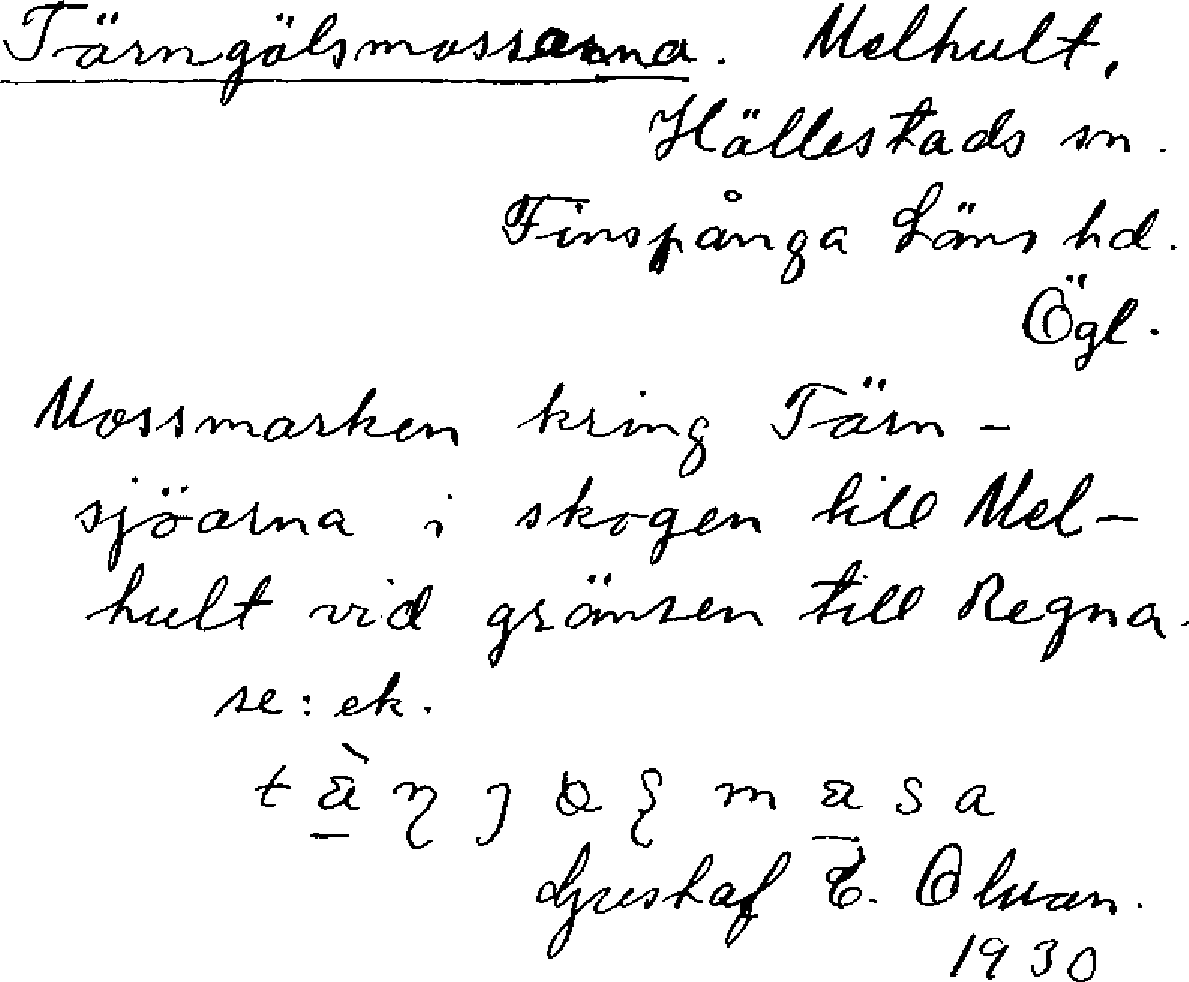 Tärngölsmossarna. Melhult,
Hällestads sn.
Finspånga Läns hd.
Ögl.
Mossmarken kring Tärn-
sjöarna i skogen till Mel-
hult vid gränsen till Regna.
se: ek.
Gustaf E. Olsson.
1930